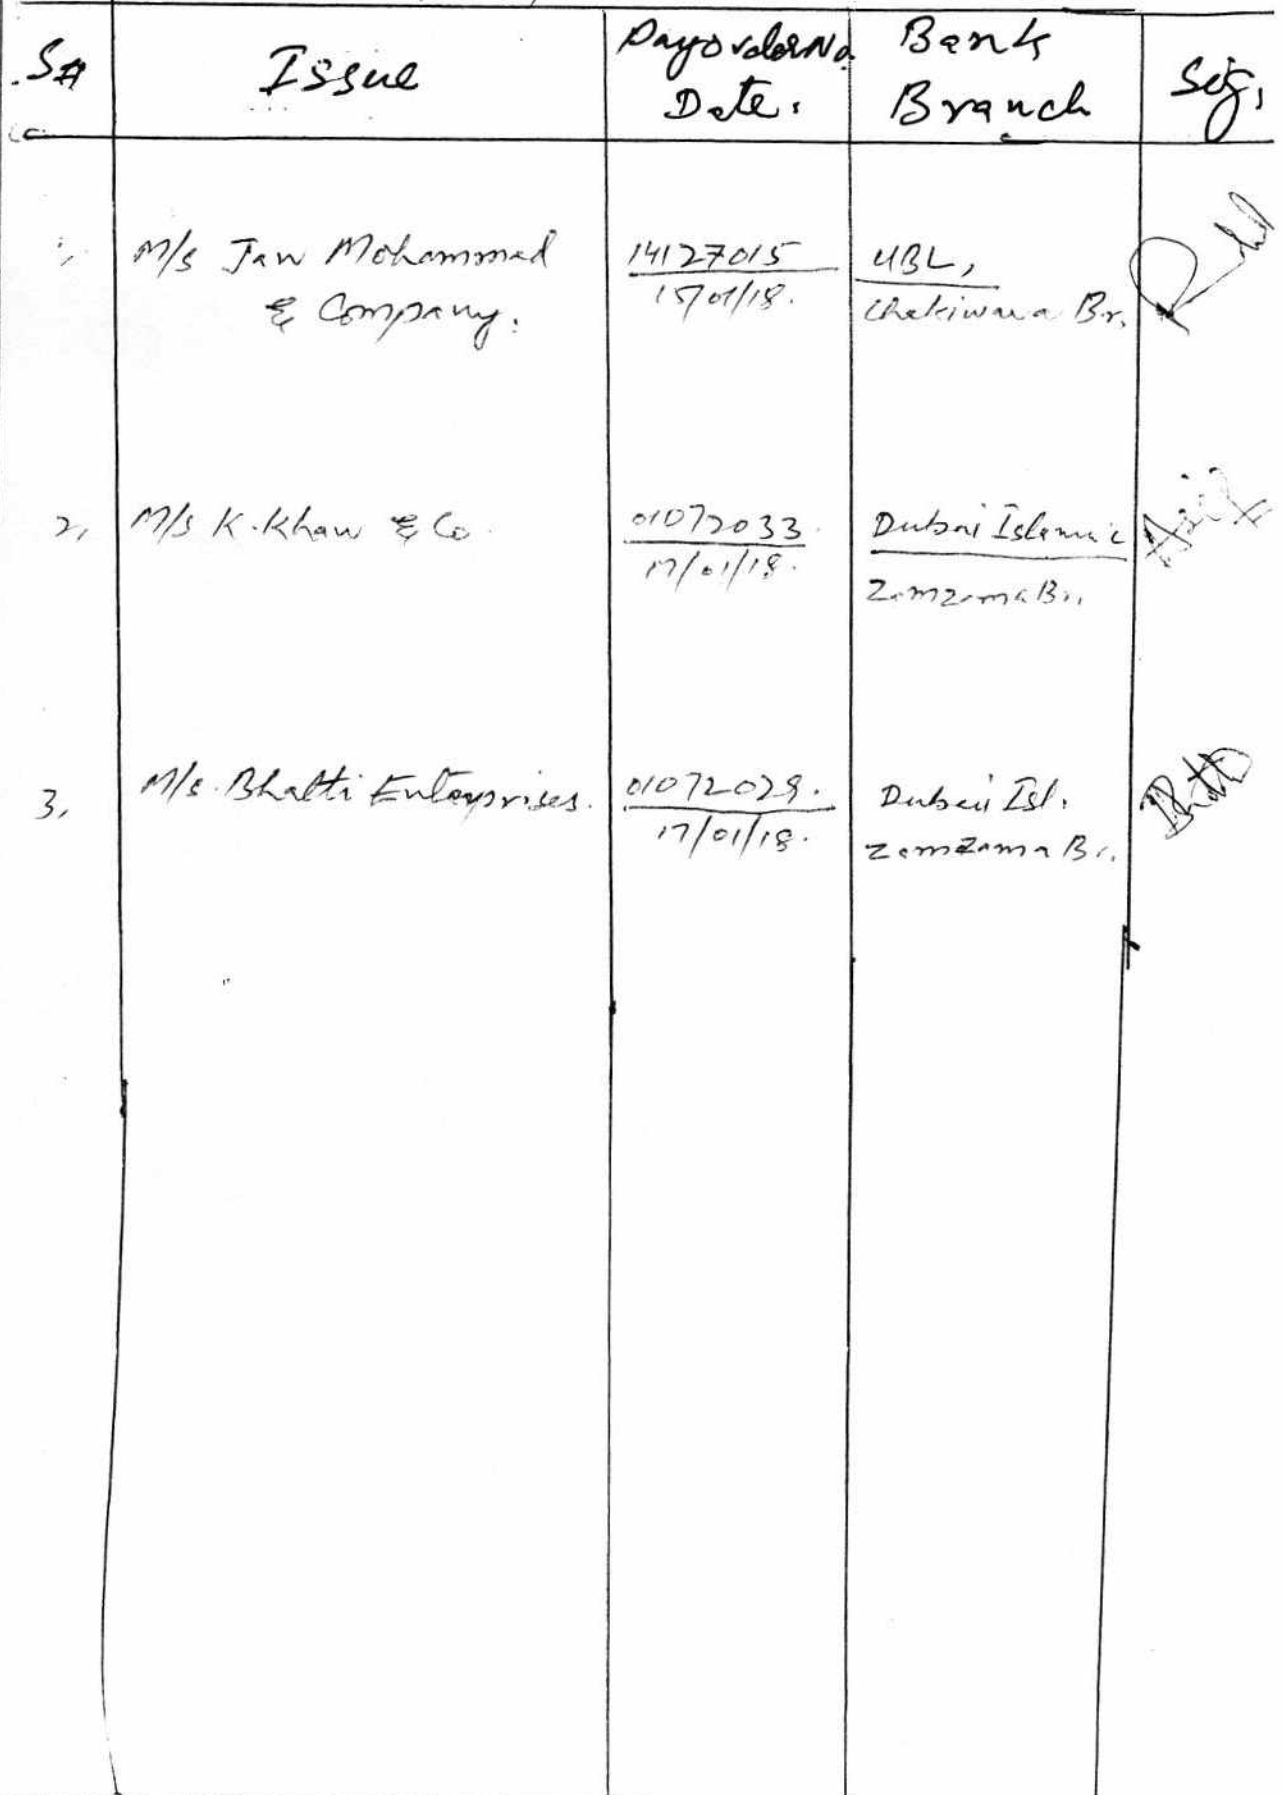 S# Issue Payorder No. Date. Bank Branch Sig.
1, M/s Jan Mohammad
& Company.
14127015
15/01/18.
UBL,
Chakiwara Br.
2, M/s K. Khan & Co.
01072033.
17/01/18.
Dubai Islamic
Zamzama Br.
3, M/s. Bhatti Enterprises.
01072029.
17/01/18.
Dubai Isl.
Zamzama Br.